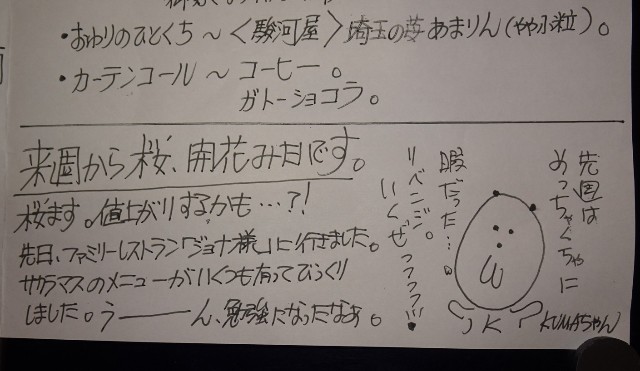 ・おわりのひとくち〜〈駿河屋〉埼玉の苺あまりん(やや小粒)。
・カーテンコール〜コーヒー。
ガトーショコラ。
来週から桜、開花みたいです。
桜ます。値上がりするかも…?!
先日、ファミリーレストラン「ジョナ様」に行きました。
サクラマスのメニューがいくつも有ってびっくり
しました。うーーーん、勉強になったなぁ。
先週は
めっちゃくちゃに
暇だった…。
リベンジ。
いくぜっフフフ!!
K
KUMAちゃん